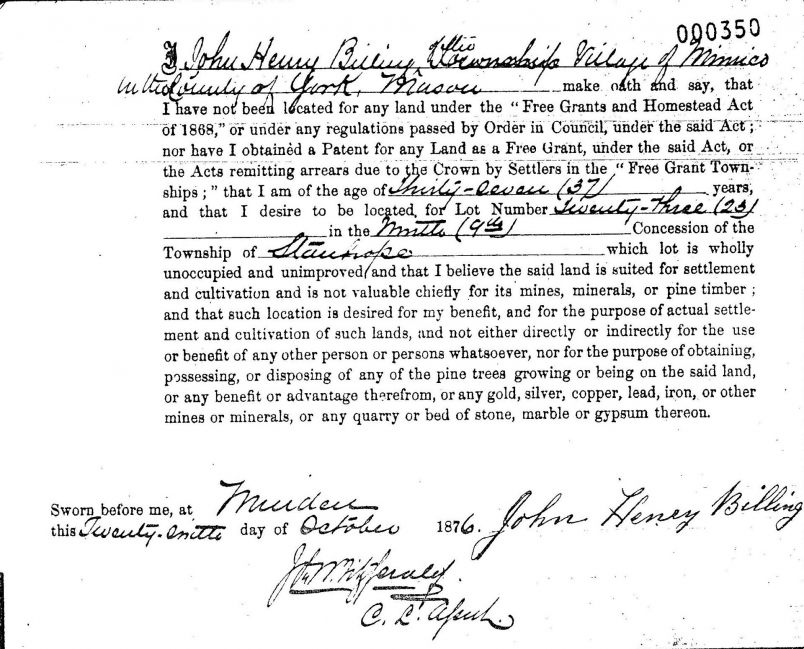 000350
I John Henry Billing of the Village of Mimico
in the County of York, Mason make oath and say, that
I have not been located for any land under the "Free Grants and Homestead Act
of 1868," or under any regulations passed by Order in Council, under the said Act;
nor have I obtained a Patent for any Land as a Free Grant, under the said Act, or
the Acts remitting arrears due to the Crown by Settlers in the "Free Grant Town-
ships;" that I am of the age of Thirty-Seven (37) years,
and that I desire to be located, for Lot Number Twenty-three (23)
in the Ninth (9th) Concession of the
Township of Stanhope which lot is wholly
unoccupied and unimproved and that I believe the said land is suited for settlement
and cultivation and is not valuable chiefly for its mines, minerals, or pine timber;
and that such location is desired for my benefit, and for the purpose of actual settle-
ment and cultivation of such lands, and not either directly or indirectly for the use
or benefit of any other person or persons whatsoever, nor for the purpose of obtaining,
possessing, or disposing of any of the pine trees growing or being on the said land,
or any benefit or advantage therefrom, or any gold, silver, copper, lead, iron, or other
mines or minerals, or any quarry or bed of stone, marble or gypsum thereon.
Sworn before me, at Minden
this Twenty-ninth day of October 1876. John Henry Billing
Fitzgerald
C. L. Agent.